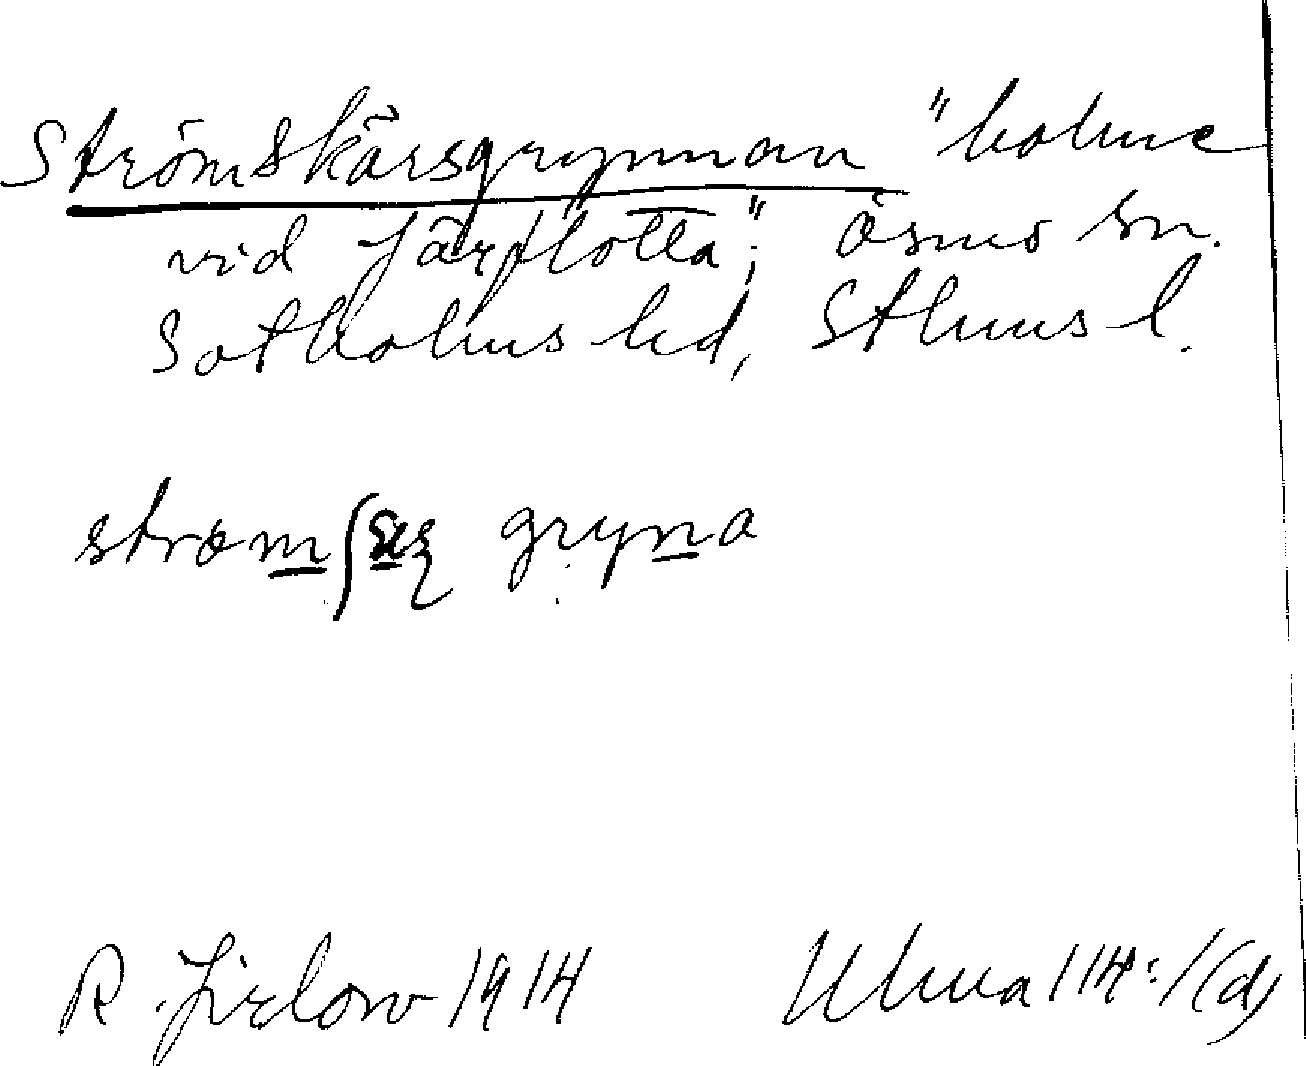 Strömskärsgrynnan "holme
vid Järflotta"; Ösmo sn.
Sotholms hd, Sthms l.
gryna
R. Jirlow 1914 Ulma 114:1(d)